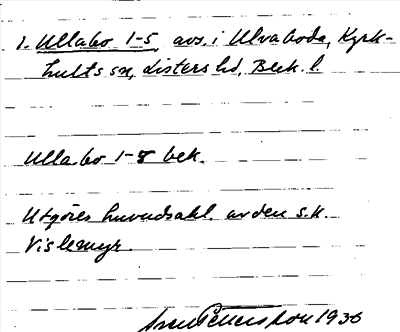 1. Ullabo 1-5, avs. i Ulvaboda, Kyrk-
hults sn, Listers hd, Blek. l.
Ullabo 1-8 bek.
Utgöres huvudsakl. av den s.k.
Vislemyr.
Pettersson 1936